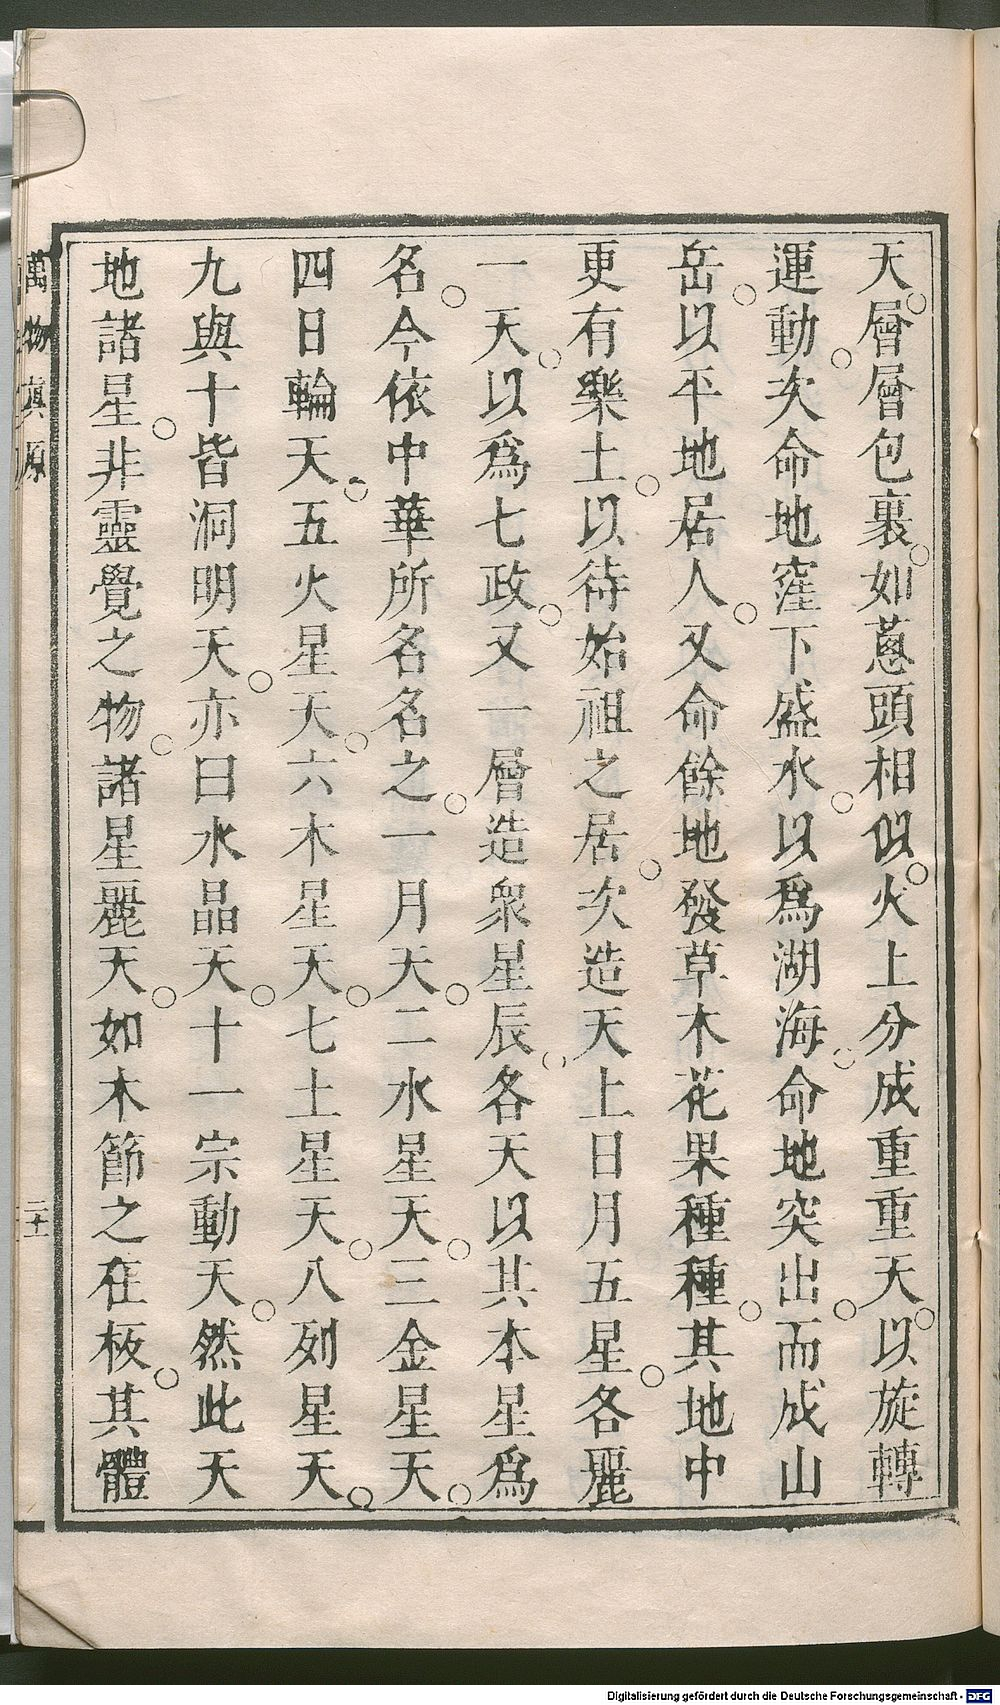 天。層層包裹。如蔥頭相似。火上分成重重天。以旋轉
運動。次命地窪下盛水。以爲湖海。命地突出。而成山
岳。以平地居人。又命餘地發草木花果種種。其地中
更有樂土。以待始祖之居。次造天上日月五星。各麗
一天。以爲七政。又一層造衆星辰。各天以其本星爲
名。今依中華所名名之。一月天。二水星天。三金星天。
四日輪天。五火星天。六木星天。七土星天。八列星天。
九與十皆洞明天。亦曰水晶天。十一宗動天。然此天
地諸星。非靈覺之物。諸星麗天。如木節之在板。其體
萬物真原
二十
Digitalisierung gefördert durch die Deutsche Forschungsgemeinschaft - DFG